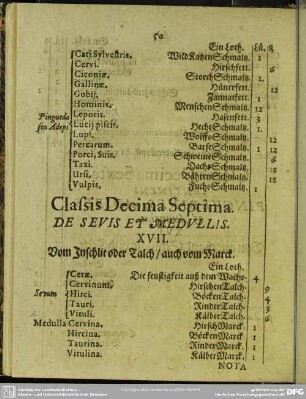 50
Ein Loth. Lü. ß
Cati Sylvestris. Wild Katzen Schmaltz. 1
Cervi. Hirschfett. 6
Ciconiæ. Storch Schmaltz. 1
Gallinæ. Hünerfett. 12
Gobij. Schmaltz. 1
Hominis. Menschen Schmaltz. 12
Pinguedo seu Adeps: Leporis. Hasenfett. 3
Lucij piscis. Hecht Schmaltz. 1
Lupi. Wolffs Schmaltz. 1
Percarum. Barse Schmaltz. 12
Porci, Suis. Schweine Schmaltz.
Taxi. Dachs Schmaltz.
Ursi. Bähren Schmaltz.
Vulpis. Fuchs Schmaltz. 1
Classis Decima Septima.
DE SEVIS ET MEDVLLIS.
XVII.
Vom Inschlit oder Talch / auch vom Marck.
Ein Loth.
Ceræ. Die feustigkeit auß dem Wachs. 4
Cervinum. Hirschen Talch. 9
Sevum Hirci. Böcken Talch. 4
Tauri. Rinder Talch. 3
Vituli. Kälber Talch. 6
Medulla Cervina. Hirsch Marck. 1
Hircina. Böcken Marck. 1
Taurina. Rinder Marck. 1
Vitulina. Kälber Marck. 1
NOTA